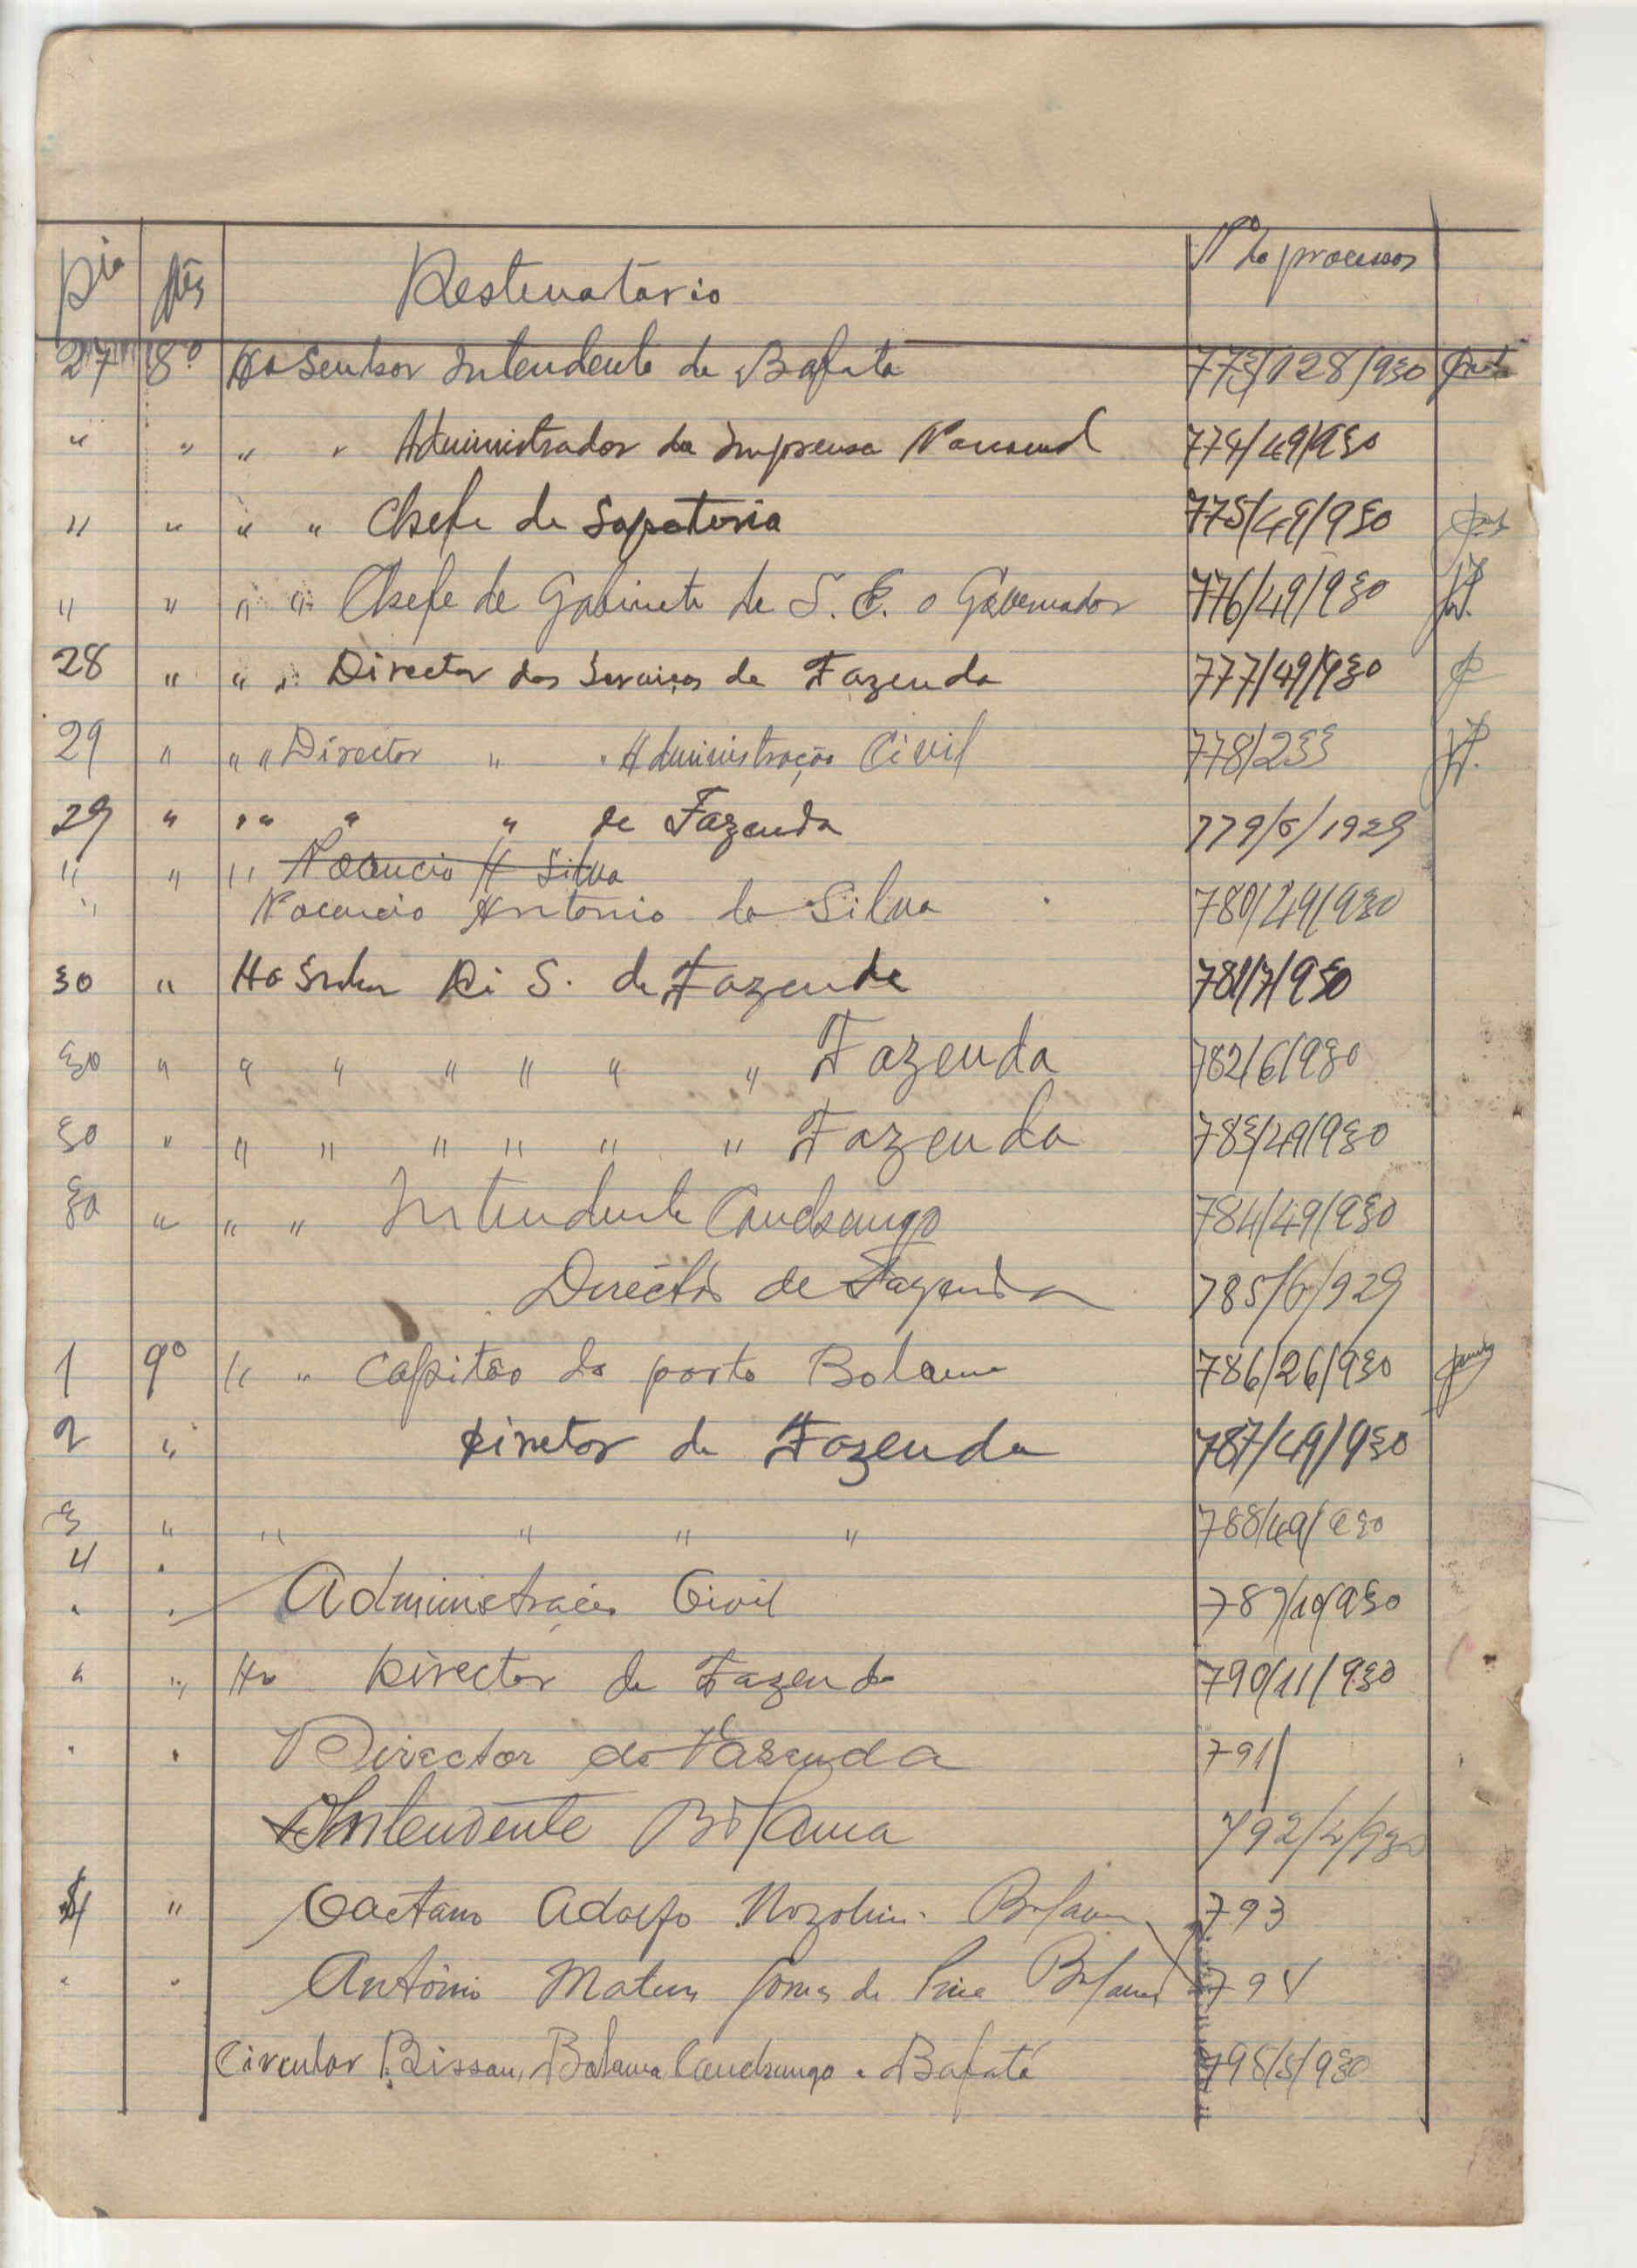 Dia Mês Destinatário Nº do processos
27 8º Ao Senhor Intendente de Bafata 773/128/930
" " " " Administrador da Imprensa Nacional 774/49/930
" " " " Chefe de Sapataria 775/49/930
" " " " Chefe de Gabinete de S. E. o Governador 776/49/930
28 " " " Director dos Serviços de Fazenda 777/49/930
29 " " " Director " " Administração Civil 778/233
29 " " " " " de Fazenda 779/6/1929
" " " Nocencio A Silva
" Nocencio Antonio da Silva 780/49/930
30 " Ao Di S. de Fazenda 781/7/930
30 " " " " " " " Fazenda 782/6/930
30 " " " " " " " Fazenda 783/49/930
30 " " " Intendente Canchungo 784/49/930
Director de Fazenda 785/6/929
1 9º " " Capitão do porto Bolama 786/26/930
2 " Diretor de Fazenda 787/49/930
3 " " " " " 788/49/930
4 "
" " Administração Civil 789/10/930
" " Ao Director de Fazenda 790/11/930
" " Director de Fazenda 791/
Intendente Bolama 792/4/930
" Caetano Adolfo Nozolini Bolama 793
" " António Mateus Gomes de Pina Bolama 794
Circular Bissau, Bolama Canchungo e Bafatá 795/5/930